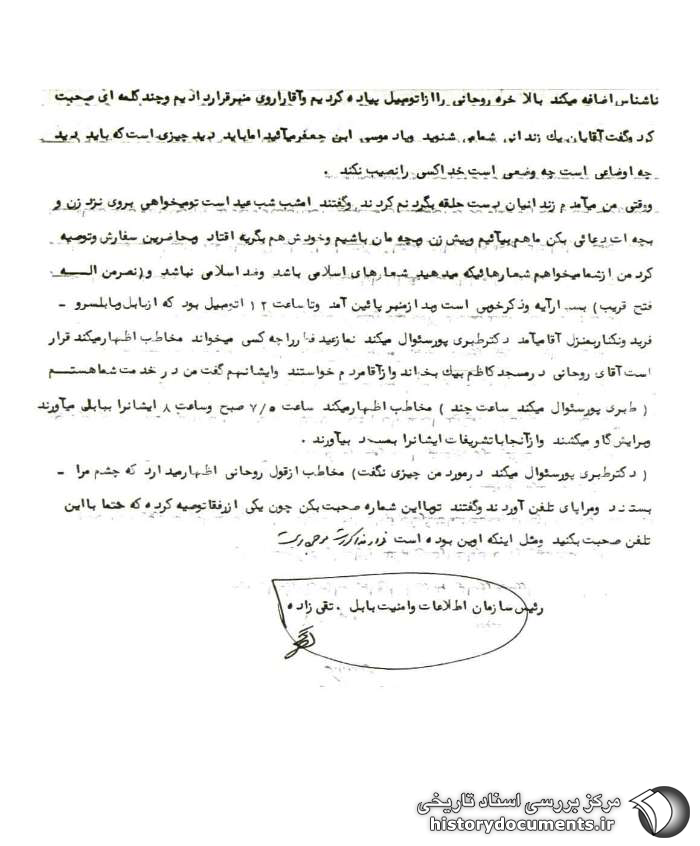 ناشناس اضافه میکند بالا خره روحانی راازاتومبیل پیاده کردیم وآقاراروی منبرقراردادیم وچند کلمه ای صحبت
کرد وگفت آقایان یك زندانی شمامی شنوید ویاد موسی ابن جعفرمیآفتید امابايد دید چیزی است که باید دید
چه اوضاعی است چه وضعی است خداکسی رانصیب نکند .
ووقتی من میآمدم زندانیان دست حلقه بگردنم کردند وگفتند امشب شب عید است تومیخواهی بروی نزد زن و
بچه ات دعائی بکن ماهم بیآئیم وپیش زن وبچه مان باشیم وخودش هم بگریه افتاد وبحاضرین سفارش وتوصیه
کرد من ازشمامیخواهم شعارهائیکه میدهید شعارهای اسلامی باشد وضد اسلامی نباشد و(نصرمن الـــه
فتح قریب) آیه وذکرخوبی است وبعد ازمنبر پائین آمد وتاساعت ۱۲ اتومبیل بود که ازبابل وبابلسرو -
فرید ونکناربمنزل آقامیآمد دکترطبری پورسئوال میکند نمازعید فطرراچه کسی میخواند مخاطب اظهارمیکند قرار
است آقای روحانی درمسجد کاظم بیك بخواند وازآقامردم خواستند وایشانهم گفت من در خدمت شماهستـــم
( طبری پورسئوال میکند ساعت چند ) مخاطب اظهارمیکند ساعت ۷/۵ صبح وساعت ۸ ایشانرا ببابل میآورند
وبرایش گاو میکشند وازآنجاباتشریفات ایشانرا بمسجد بیآورند .
( دکترطبری پورسئوال میکند درمورد من چیزی نگفت) مخاطب ازقول روحانی اظهارمیدارد که چشم مرا -
بستند ومراپای تلفن آوردند وگفتند توبااین شماره صحبت بکن چون یکی ازرفقاتوصیه کرده که حتما بااین
تلفن صحبت بکنید ومثل اینکه اوین بوده است
رئیس سازمان اطلاعات وامنیت بابل . تقی زاده
مرکز بررسی اسناد تاریخی
historydocuments.ir